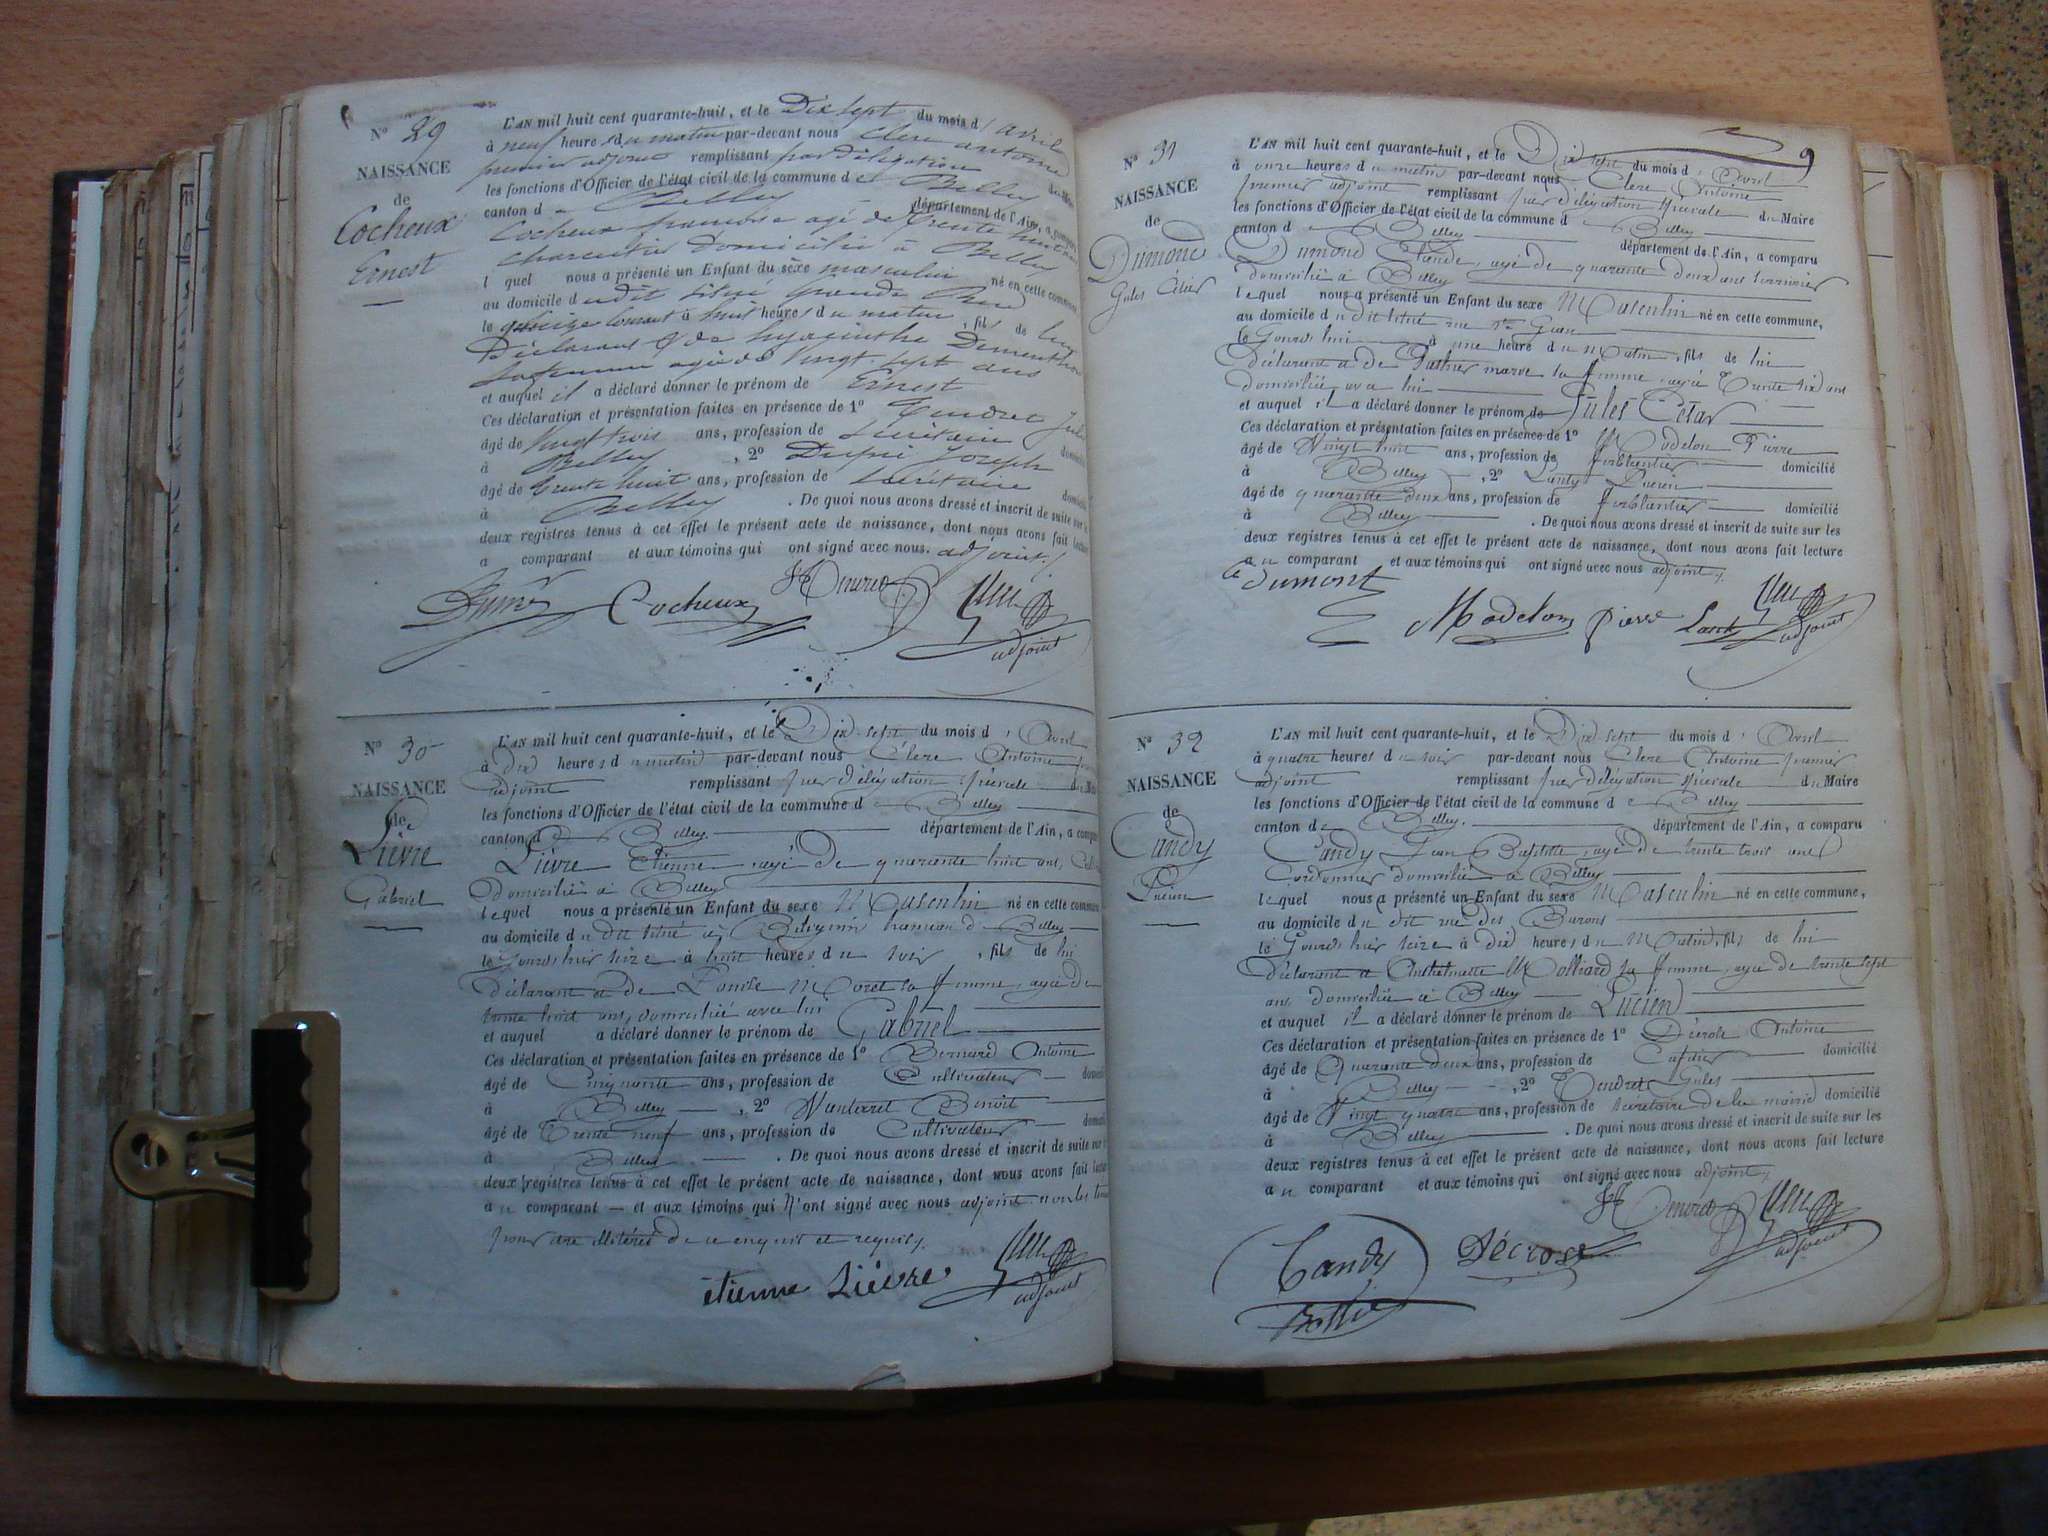 N° 29
NAISSANCE
de
Cocheux
Ernest
L'AN mil huit cent quarante-huit, et le Dix sept du mois d'avril
à neuf heures du matin par-devant nous Clerc antoine
premier adjoint remplissant par délégation
les fonctions d'Officier de l'état civil de la commune de Belley
canton de Belley département de l'Ain, a comparu
Cocheux françois agé de trente huit ans
charcutier domicilié à Belley
lequel nous a présenté un Enfant du sèxe masculin né en cette commune
au domicile dudit situé grande Rue
le quinze courant à huit heures du matin, fils de lui
Déclarant & de hyacinthe Dementhon
sa femme agée de Vingt-sept ans
et auquel il a déclaré donner le prénom de Ernest
Ces déclaration et présentation faites en présence de 1° Tendret Jules
âgé de Vingt trois ans, profession de Secrétaire
à Belley, 2° Dupré Joseph
âgé de trente huit ans, profession de Secrétaire
à Belley. De quoi nous avons dressé et inscrit de suite sur les
deux registres tenus à cet effet le présent acte de naissance, dont nous avons fait lecture
a comparant et aux témoins qui ont signé avec nous. adjoint./.
Dupré Cocheux Tendret
adjoint
N° 30
NAISSANCE
de
Lièvre
Gabriel
L'AN mil huit cent quarante-huit, et le Dix-sept du mois d'Avril
à dix heures du matin par-devant nous Clerc Antoine
adjoint remplissant par délégation spéciale du
les fonctions d'Officier de l'état civil de la commune de Belley
canton de Belley département de l'Ain, a comparu
Lièvre Etienne, agé de quarante huit ans,
domicilié à Belley
lequel nous a présenté un Enfant du sexe Masculin né en cette commune
au domicile du dit situé à hameau de Belley
le jourd'hier seize à huit heures du soir, fils de lui
déclarant et de Louise Moret sa femme, agée de
trente huit ans, domiciliée avec lui
et auquel a déclaré donner le prénom de Gabriel
Ces déclaration et présentation faites en présence de 1° Bernard Antoine
âgé de Cinquante ans, profession de Cultivateur
à Belley, 2° Benoit
âgé de Trente neuf ans, profession de Cultivateur
à Belley. De quoi nous avons dressé et inscrit de suite sur
deux registres tenus à cet effet le présent acte de naissance, dont nous avons fait lecture
au comparant — et aux témoins qui N'ont signé avec nous adjoint
pour être illitérés de ce enquis et requis./.
étienne Lièvre
adjoint
9
N° 31
NAISSANCE
de
Dumond
Jules César
L'AN mil huit cent quarante-huit, et le Dix sept du mois d'Avril
à onze heures du matin par-devant nous Clerc Antoine
premier adjoint remplissant par délégation spéciale du Maire
les fonctions d'Officier de l'état civil de la commune de Belley
canton de Belley département de l'Ain, a comparu
Dumond Claude, agé de quarante deux ans
domicilié à Belley
lequel nous a présenté un Enfant du sexe Masculin né en cette commune,
au domicile du dit situé rue St Jean
le jourd'hui à une heure du Matin, fils de lui
déclarant et de marie sa femme, agée Trente six ans
domiciliée avec lui
et auquel il a déclaré donner le prénom de Jules César
Ces déclaration et présentation faites en présence de 1° Modelon Pierre
âgé de Vingt huit ans, profession de ferblantier domicilié
à Belley, 2° Lucien
âgé de quarante deux ans, profession de ferblantier domicilié
à Belley. De quoi nous avons dressé et inscrit de suite sur les
deux registres tenus à cet effet le présent acte de naissance, dont nous avons fait lecture
au comparant et aux témoins qui ont signé avec nous adjoint./.
Dumont
Modelon pierre
adjoint
N° 32
NAISSANCE
de
Candy
Lucien
L'AN mil huit cent quarante-huit, et le Dix sept du mois d'Avril
à quatre heures du soir par-devant nous Clerc Antoine premier
adjoint remplissant par délégation spéciale du Maire
les fonctions d'Officier de l'état civil de la commune de Belley
canton de Belley. département de l'Ain, a comparu
Candy Jean Baptiste, agé de trente trois ans
Cordonnier domicilié à Belley
lequel nous a présenté un Enfant du sexe Masculin né en cette commune,
au domicile du dit rue des Barons
le jourd'hier seize à dix heures du Matin, fils de lui
déclarant et Anthelmette Molliard sa femme, agée de trente sept
ans, domiciliée à Belley
et auquel il a déclaré donner le prénom de Lucien
Ces déclaration et présentation faites en présence de 1° Décrose Antoine
âgé de Quarante deux ans, profession de Cafetier domicilié
à Belley, 2° Tendret Jules
âgé de Vingt quatre ans, profession de secrétaire de la mairie domicilié
à Belley. De quoi nous avons dressé et inscrit de suite sur les
deux registres tenus à cet effet le présent acte de naissance, dont nous avons fait lecture
au comparant et aux témoins qui ont signé avec nous adjoint./.
Tendret
Candy Décrose adjoint